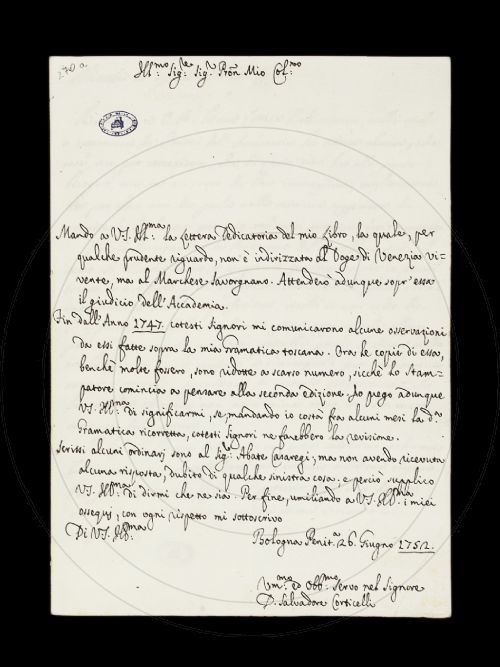 270 a
Ill:mo Sig:re Sig:r Pron Mio Col:mo
Mando a V.S. Ill:ma la Lettera Dedicatoria del mio Libro, la quale, per
qualche prudente riguardo, non è indirizzata al Doge di Venezia vi=
vente, ma al Marchese Savorgnano. Attenderò adunque sopr' essa
il giudicio dell' Accademia.
Fin dall' Anno 1747. cotesti Signori mi comunicarono alcune osservazioni
da essi fatte sopra la mia Gramatica toscana. Ora le copie di essa,
benchè molte fossero, sono ridotte a scarso numero, sicchè lo Stam=
patore comincia a pensare alla seconda edizione. Io prego adunque
V.S. Ill:ma di significarmi, se, mandando io costà fra alcuni mesi la d:a
Gramatica ricorretta, cotesti Signori ne farebbero la revisione.
Scrissi alcuni ordinarj sono al Sig:r Abate Casaregi; ma non avendo ricevuta
alcuna risposta, dubito di qualche sinistra cosa; e perciò supplico
V.S. Ill:ma di dirmi che ne sia. Per fine, umiliando a V.S. Ill:ma i miei
ossequj, con ogni rispetto mi sottoscrivo
Di V.S. Ill:ma
Bologna Penit:a 26. Giugno 1752.
Um:mo ed Obb:mo Servo nel Signore
D. Salvadore Corticelli